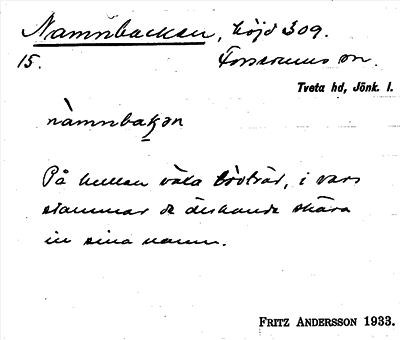 Namnbacken, höjd 309.
15. Forserums sn.
Tveta hd, Jönk. l.
nàmnbakən
På kullen växa lövträd, i vars
stammar de älskande skära
in sina namn.
FRITZ ANDERSSON 1933.